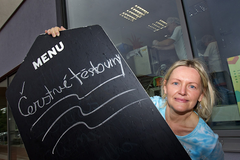 MENU
Čerstvé těstoviny